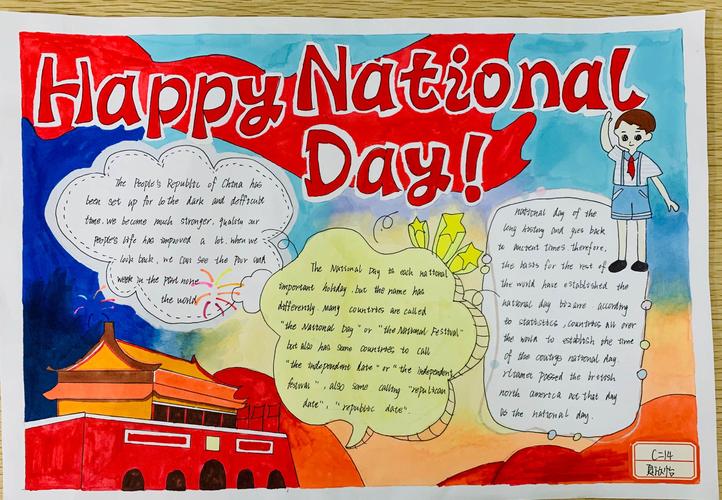 Happy National
Day!
The People's Republic of China has
been set up for 60 the dark and deffcule
time. we become much stronger. Quality our
people's life has improved a lot. when we
look back, we can see the poor and
week in the past none
the world
The National Day to each national
important holiday. but the name has
differently. Many countries are called
"the National Day" or "the National Festival"
but also has some countries to call
"the independent date" or "the independent
festival", also some calling "republican
date", "republic date".
National day of the
long history and goes back
to ancient times. therefore,
the basis for the rest of
the world have established the
national day bizare. according
to statistics, countries all over
the world to establish the time
of the country national day.
passed the british
north america act that day
as the national day.
C=14